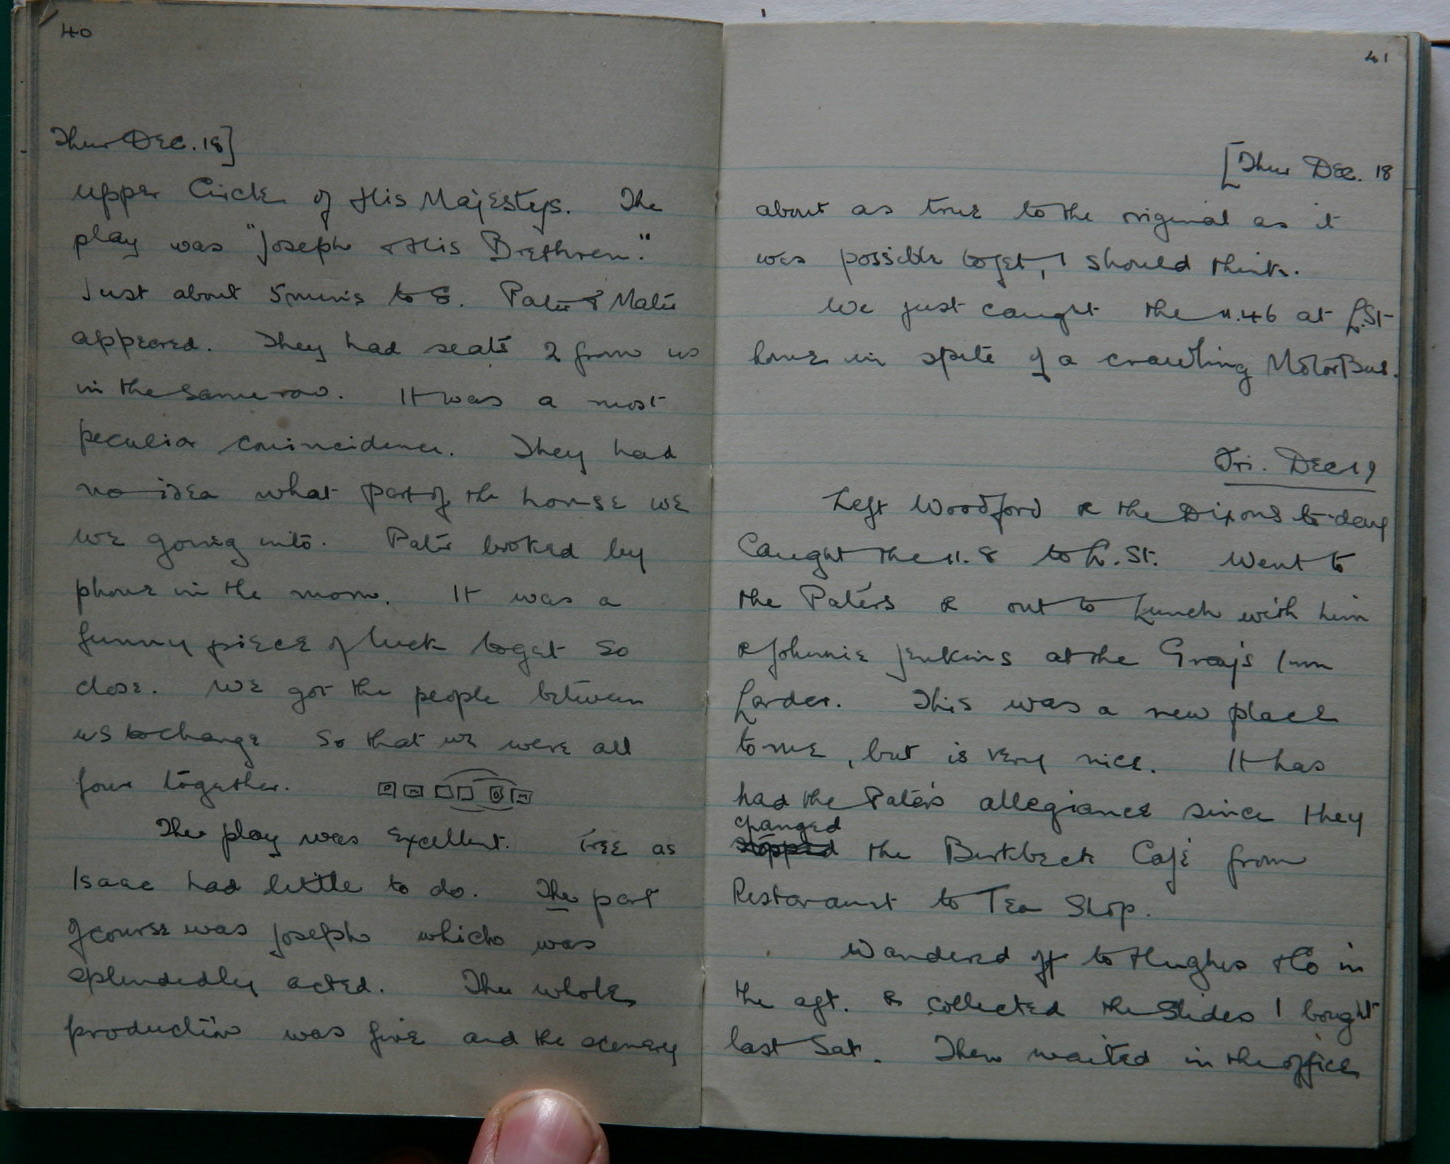 40
Thur Dec. 18]
upper Circle of His Majestys. The
play was "Joseph & His Brethren."
Just about 5 mins to 8. Pater & Mater
appeared. They had seats 2 from us
in the same row. It was a most
peculiar coincidence. They had
no idea what part of the house we
we going into. Pater booked by
phone in the morn. It was a
funny piece of luck to get so
close. We got the people between
us to change so that we were all
four together.
The play was excellent. Tree as
Isaac had little to do. The part
of course was Joseph which was
splendedly acted. The whole
production was fine and the scenery
41
[Thur Dec. 18
about as true to the original as it
was possible to get, I should think.
We just caught the 11.46 at L.St
home in spite of a crawling MotorBus.
Fri. Dec 19
Left Woodford & the Dixons to-day
Caught the 11.8 to L. St. Went to
the Paters & out to Lunch with him
& Johnnie Jenkins at the Gray's Inn
Larder. This was a new place
to me, but is very nice. It has
had the Pater's allegiance since they
changed
stopped the Birkbeck Café from
Restaraunt to Tea Shop.
Wandered off to Hughes & Co in
the aft. & collected the Slides I bought
last Sat. Then waited in the office